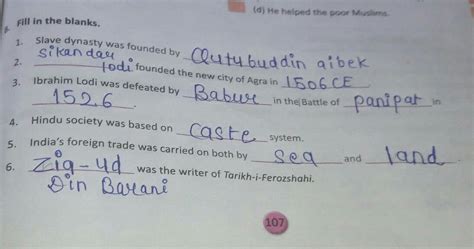 (d) He helped the poor Muslims.
Fill in the blanks.
1. Slave dynasty was founded by Qutubuddin aibek
2. sikandar lodi founded the new city of Agra in 1506 CE
3. Ibrahim Lodi was defeated by Babur in the Battle of panipat in
1526.
4. Hindu society was based on caste system.
5. India's foreign trade was carried on both by sea and land.
6. Zia-ud Din Barani was the writer of Tarikh-i-Ferozshahi.
107